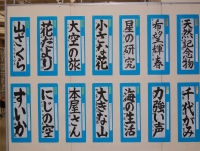 天然記念物
希望輝く春
星の研究
小さな花
大空の旅
花だより
山ざくら
千代がみ
力強い声
海の生活
大きな山
本屋さん
にじの空
すいか